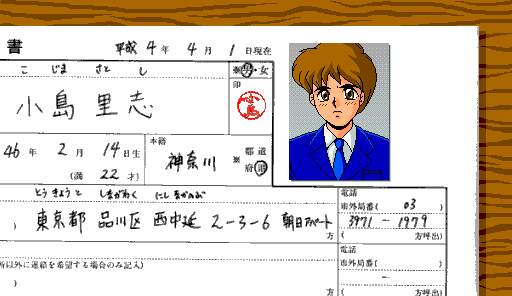 書 平成 4 年 4 月 1 日現在
こ じま さと し
※男・女
印
小島 里志
小島
46 年 2 月 14 日生
(満 22 才)
本籍
神奈川 ※ 都 道 府 県
とうきょうと しながわく にしなかのぶ
) 東京都 品川区 西中延 2-3-6 朝日アパート
方
電話
市外局番( 03 )
3971 - 1979
( 方呼出)
所以外に連絡を希望する場合のみ記入)
)
方
電話
市外局番( )
-
( 方呼出)